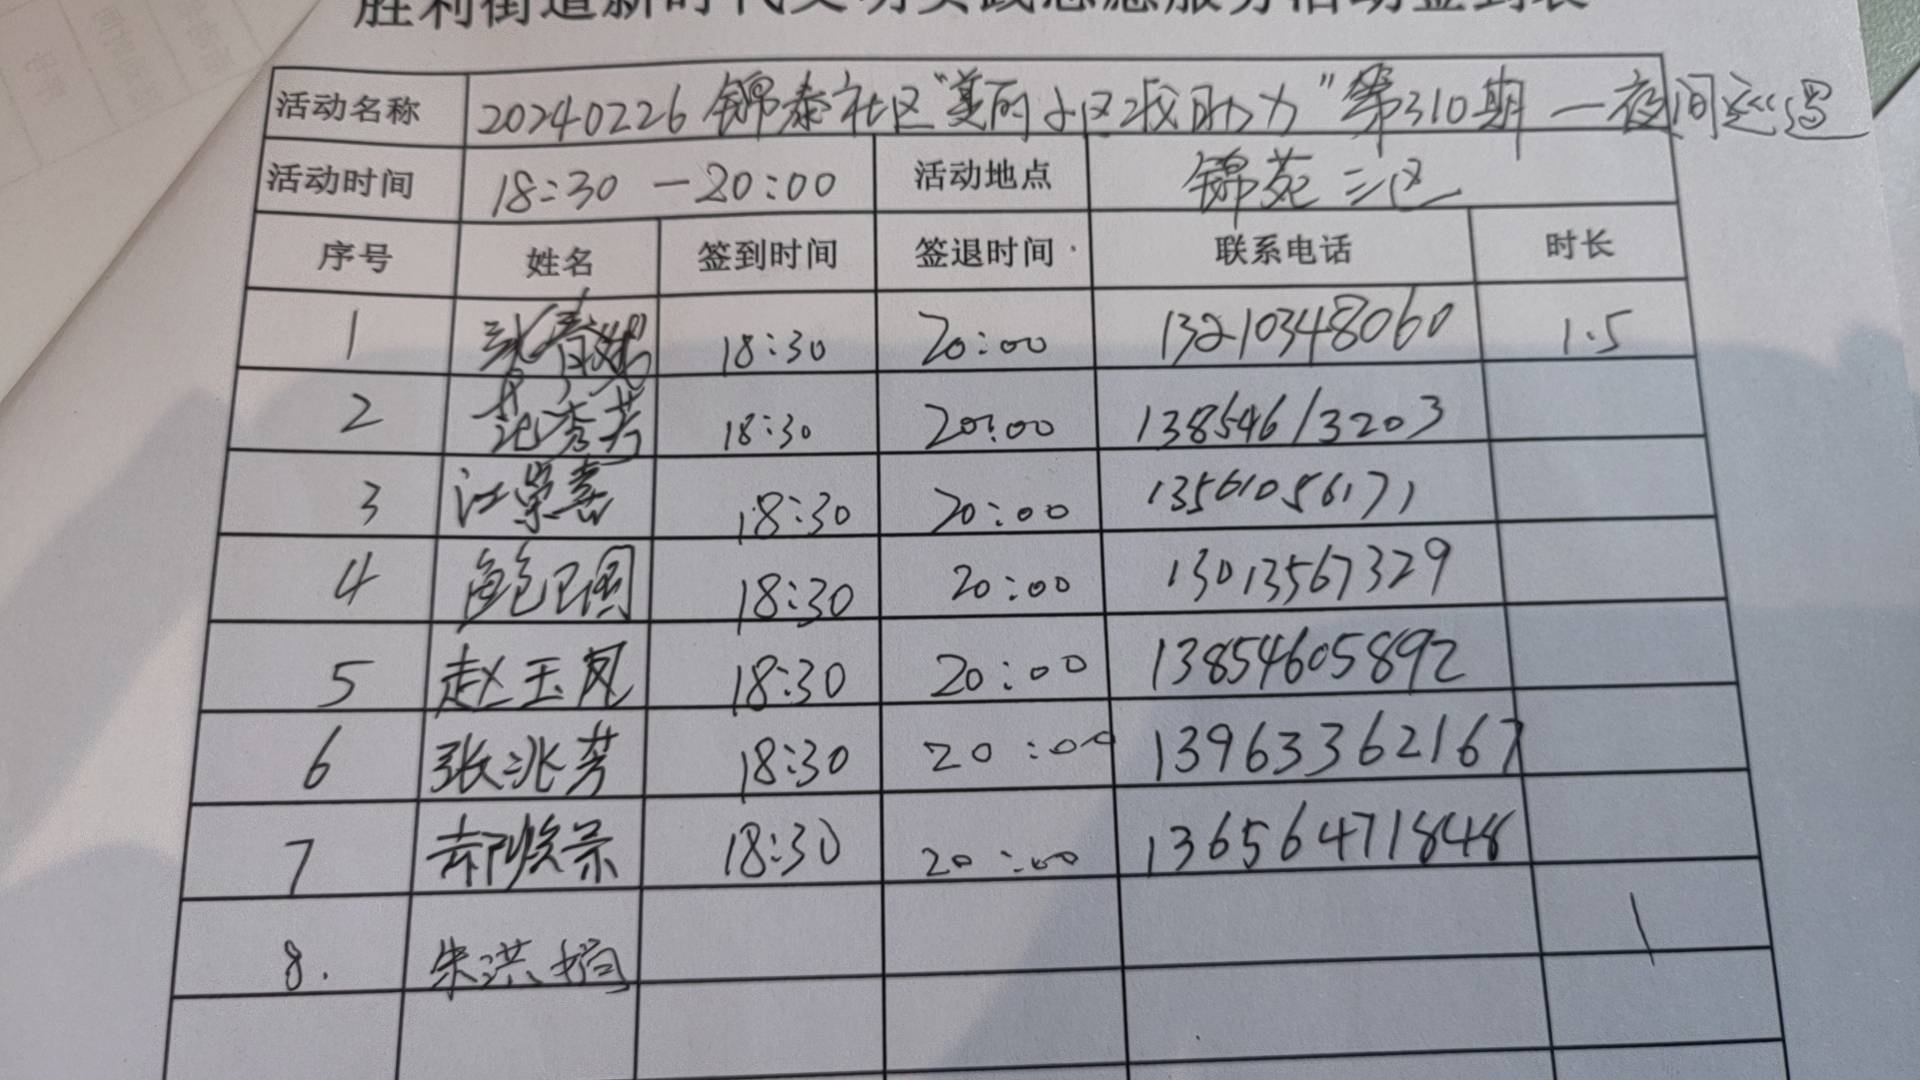 胜利街道新时代文明实践志愿服务活动签到表
活动名称 20240226 锦泰社区“美丽小区我助力”第310期 一夜间巡逻
活动时间 18:30 — 20:00 活动地点 锦苑三区
序号 姓名 签到时间 签退时间 联系电话 时长
1 18:30 20:00 13210348060 1.5
2 秀芳 18:30 20:00 13854613203
3 江崇喜 18:30 20:00 13561056171
4 鲍卫国 18:30 20:00 13013567329
5 赵玉凤 18:30 20:00 13854605892
6 张兆芳 18:30 20:00 13963362167
7 郝俊荣 18:30 20:00 13656471848
8. 朱洪娟